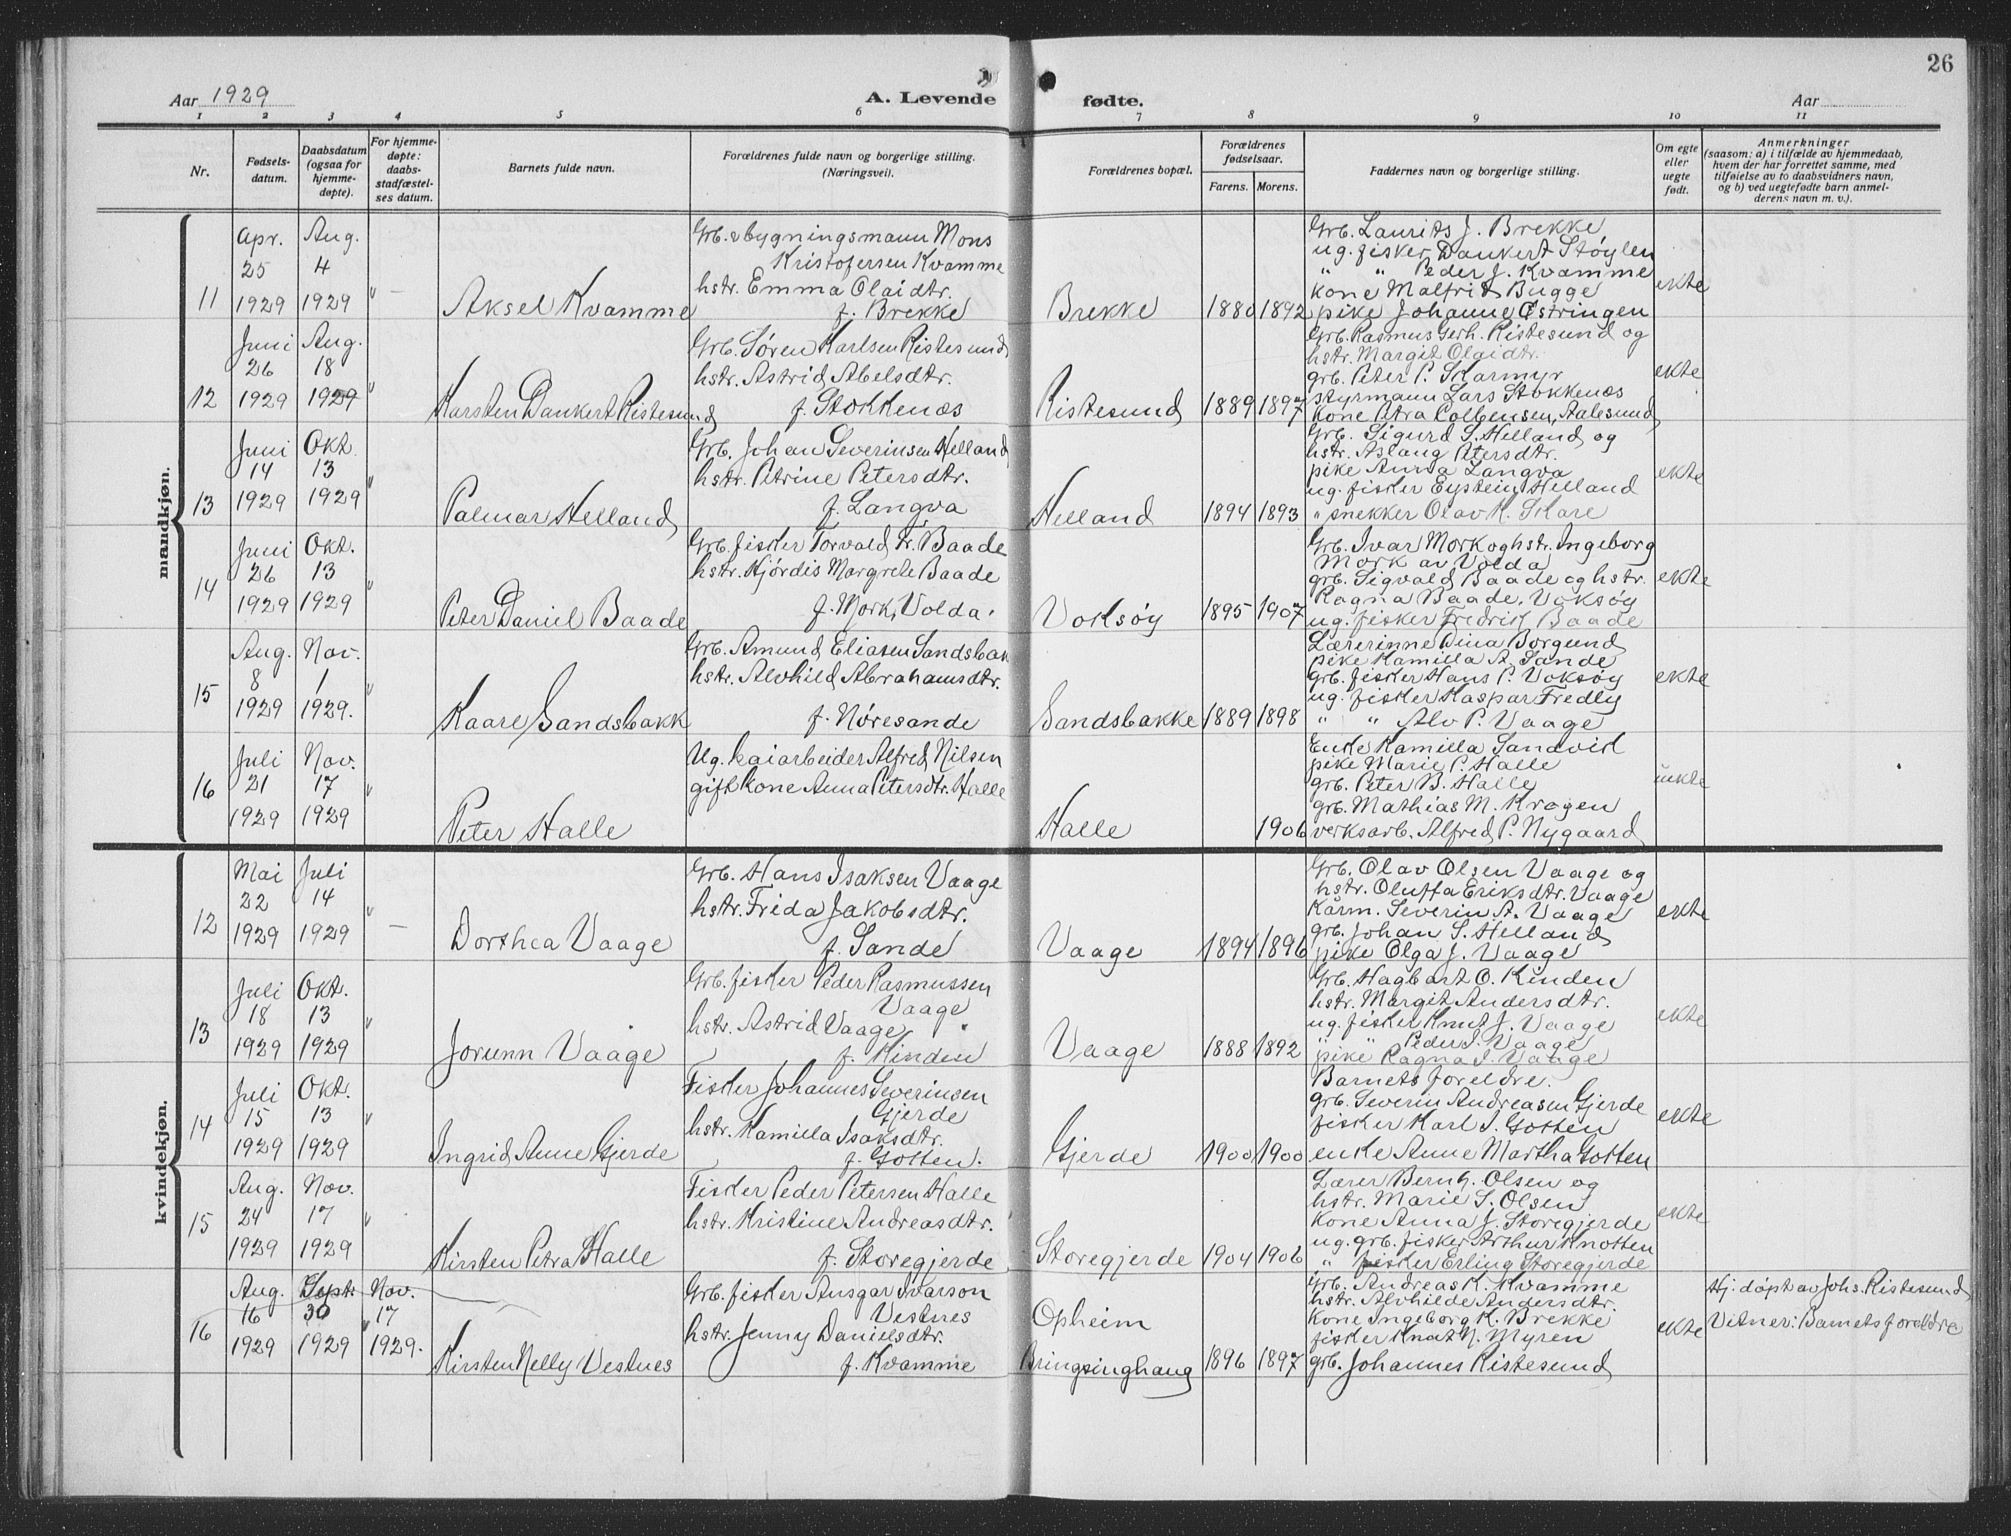 26
Aar 1929
A. Levende fødte.
Aar
1 2 3 4 5 6 7 8 9 10 11
Nr.
Fødsels-
datum.
Daabsdatum
(ogsaa for
hjemme-
døpte).
For hjemme-
døpte:
daabs-
stadfæstel-
ses datum.
Barnets fulde navn.
Forældrenes fulde navn og borgerlige stilling.
(Næringsvei).
Forældrenes bopæl.
Forældrenes
fødselsaar.
Farens. Morens.
Faddernes navn og borgerlige stilling.
Om egte
eller
uegte
født.
Anmerkninger
(saasom: a) i tilfælde av hjemmedaab,
hvem der har forrettet samme, med
tilføielse av to daabsvidners navn,
og b) ved uegtefødte barn anmel-
derens navn m. v.).
mandkjøn.
11
Apr.
25
1929
Aug.
4
1929
Aksel Kvamme
Grb. & bygningsmann Mons
Kristofersen Kvamme
hstr. Emma Olaidtr.
f. Brekke
Brekke
1880 1892
Grb. Laurits J. Brekke
ug. fisker Dankert Støylen
" " Peder J. Kvamme
kone Malfrid Bugge
pike Johanne Østringen
ekte
12
Juni
26
1929
Aug.
18
1929
Karsten Dankert Ristesund
Grb. Søren Karlsen Ristesund
hstr. Astrid Abelsdtr.
f. Stokkenæs
Ristesund
1889 1897
Grb. Rasmus Gerh. Ristesund og
hstr. Margit Olaidtr.
grb. Peter P. Skarmyr
styrmann Lars Stokkenæs
kone Petra Colbensen, Aalesund
ekte
13
Juni
14
1929
Okt.
13
1929
Palmar Helland
Grb. Johan Severinsen Helland
hstr. Petrine Petersdtr.
f. Langva
Helland
1894 1893
Grb. Sigurd S. Helland og
hstr. Aslaug Petersdtr.
pike Anna Langva
ug. fisker Eystein Helland
" snekker Olav K. Skare
ekte
14
Juni
26
1929
Okt.
13
1929
Peter Daniel Baade
Grb. fisker Torvald Fr. Baade
hstr. Hjördis Margrete Baade
f. Mork, Volda.
Voksøy
1895 1907
Grb. Ivar Mork og hstr. Ingeborg
Mork av Volda
grb. Sigvald Baade og hstr.
Ragna Baade, Voksøy
ug. fisker Fredrik Baade
ekte
15
Aug.
8
1929
Nov.
1
1929.
Kaare Sandsbakk
Grb. Amund Eliasen Sandsbak
hstr. Alvhild Abrahamsdtr.
f. Nøresande
Sandsbakke
1889 1898
Lærerinne Dina Borgund
pike Kamilla A. Sande
grb. fisker Hans P. Voksøy
ug. fisker Kaspar Fredly
" " Alv P. Vaage
ekte
16
Juli
21
1929
Nov.
17
1929
Peter Halle
Ug. kaiarbeider Alfred Nilsen
gift kone Anna Petersdtr. Halle
Halle
1906
Enke Kamilla Sandvik
pike Marie P. Halle
grb. Peter B. Halle
grb. Mathias M. Krogen
verksarb. Alfred P. Nygaard
uekte
kvindekjøn.
12
Mai
22
1929
Juli
14
1929
Dorthea Vaage
Grb. Hans Isaksen Vaage
hstr. Frida Jakobsdtr.
f. Sande
Vaage
1894 1896
Grb. Olav Olsen Vaage og
hstr. Oluffa Eriksdtr. Vaage
Kårm. Severin A. Vaage
grb. Johan S. Helland
pike Olga J. Vaage
ekte
13
Juli
18
1929
Okt.
13
1929
Jorunn Vaage
Grb. fisker Peder Rasmussen
Vaage
hstr. Astrid Vaage
f. Kinden
Vaage
1888 1892
Grb. Hagbart O. Kinden
hstr. Margit Andersdtr.
ug. fisker Knut J. Vaage
" " Peder J. Vaage
pike Ragna J. Vaage
ekte
14
Juli
15
1929
Okt.
13
1929
Ingrid Anne Gjerde
Fisker Johannes Severinsen
Gjerde
hstr. Kamilla Isaksdtr.
f. Gotten.
Gjerde
1900 1900
Barnets foreldre.
grb. Severin Andreasen Gjerde
fisker Karl I. Gotten
enke Anne Martha Gotten
ekte
15
Aug.
24
1929
Nov.
17
1929
Kirsten Petra Halle
Fisker Peder Petersen Halle
hstr. Kristine Andreasdtr.
f. Storegjerde
Storegjerde
1904 1906
Lærer Bernh. Olsen og
hstr. Marie S. Olsen
kone Anna J. Storegjerde
ug. grb. fisker Arthur Knotten
" fisker Erling Storegjerde
ekte
16
Aug.
16
1929
Sept.
30
1929
Nov.
17
1929.
Kirsten Nelly Vestnes
Grb. fisker Ansgar Ivarson
Vestnes
hstr. Jenny Danielsdtr.
f. Kvamme
Opheim
Bringsinghaug
1896 1897
Grb. Andreas K. Kvamme
hstr. Alvhilde Andersdtr.
Kone Ingeborg K. Brekke
fisker Knut N. Myren
grb. Johannes Ristesund
ekte
Hj. døpt av Johs. Ristesund
Vitner: Barnets foreldre